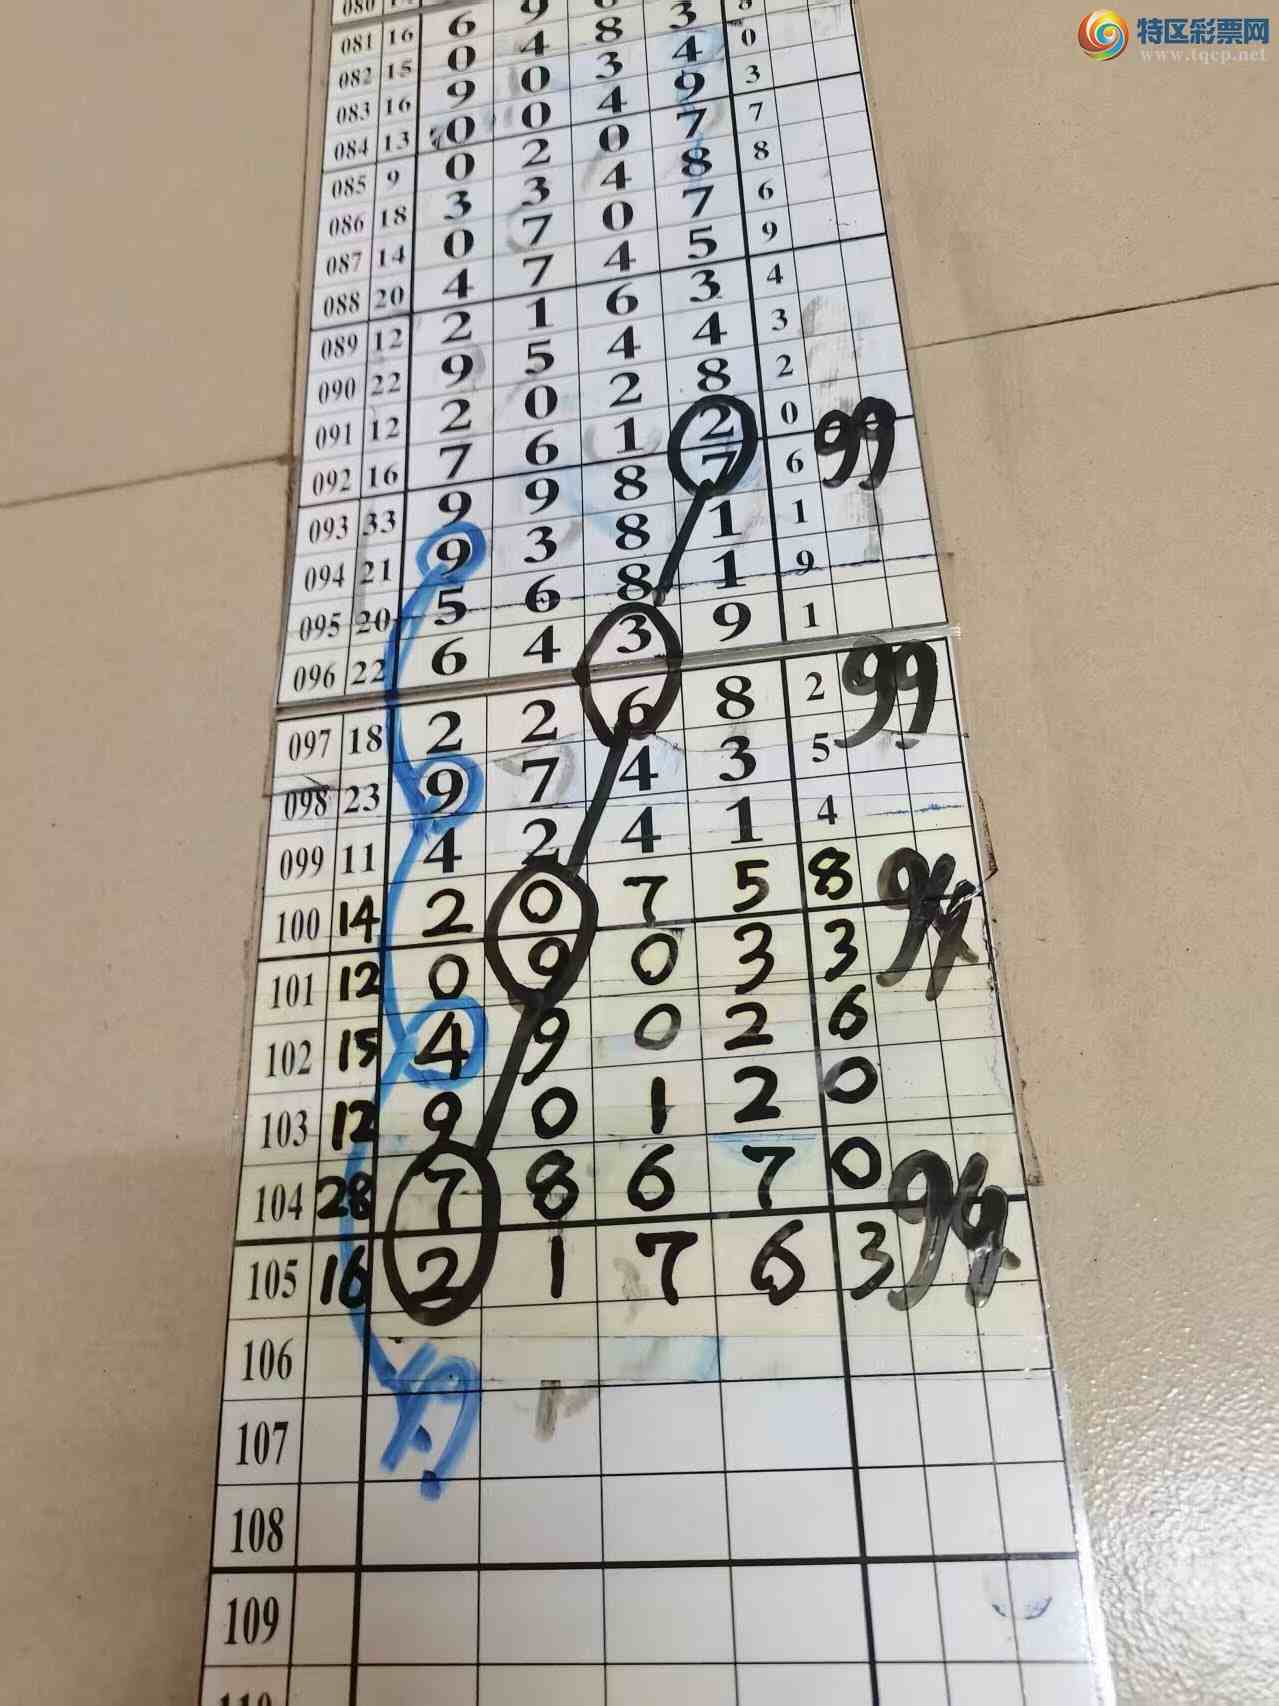 特区彩票网
www.tqcp.net
080
081 16 6 9
082 15 0 4 8 3
083 16 9 0 3 4 0
084 13 0 0 4 9 3
085 9 0 2 0 7 7
086 18 3 3 4 8 8
087 14 0 7 0 7 6
088 20 4 7 4 5 9
089 12 2 1 6 3 4
090 22 9 5 4 4 3
091 12 2 0 2 8 2
092 16 7 6 1 2 0 99
093 33 9 9 8 7 6
094 21 9 3 8 1 1
095 20 5 6 8 1 9
096 22 6 4 3 9 1
097 18 2 2 6 8 2 99
098 23 9 7 4 3 5
099 11 4 2 4 1 4
100 14 2 0 7 5 8 94
101 12 0 9 0 3 3
102 15 4 9 0 2 6
103 12 9 0 1 2 0
104 28 7 8 6 7 0
105 16 2 1 7 6 3
106
107
108
109